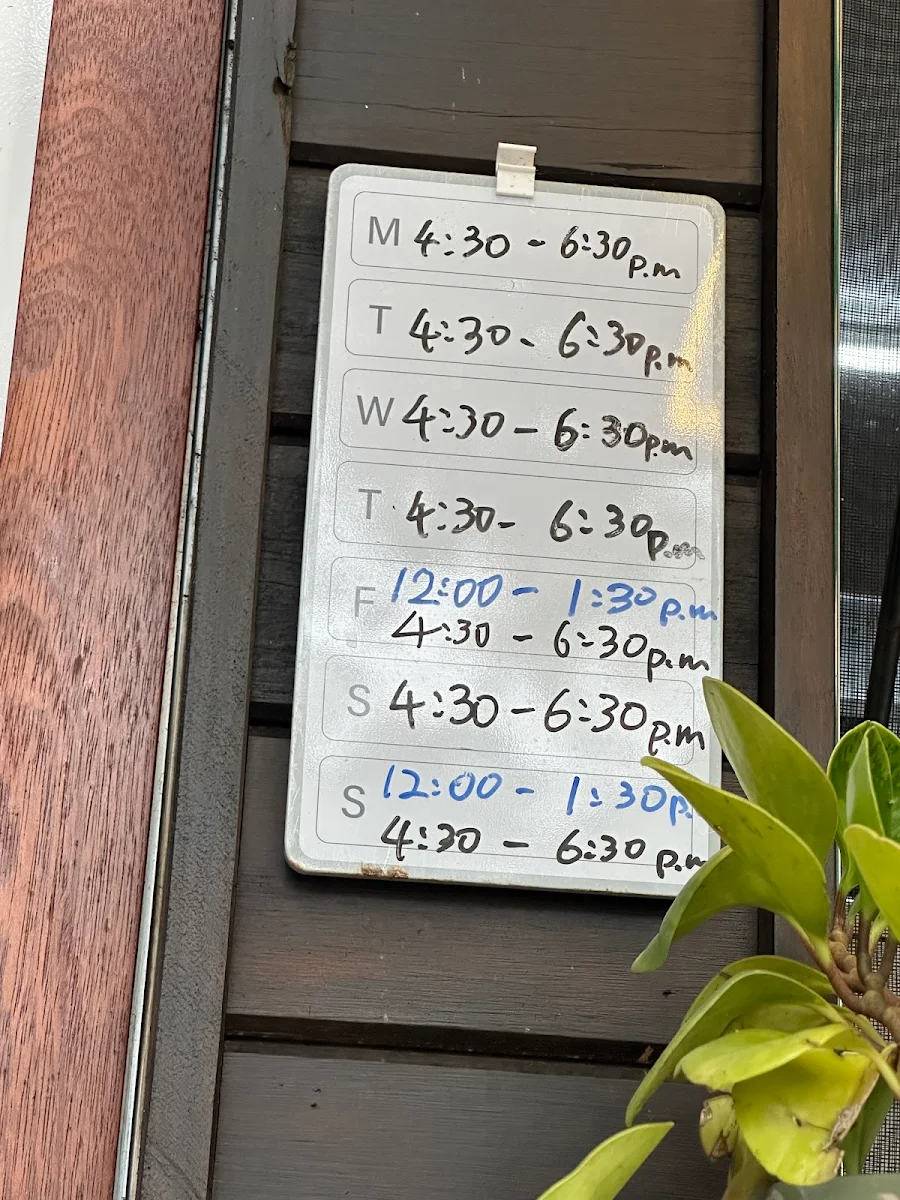 M 4:30 - 6:30 p.m
T 4:30 - 6:30 p.m
W 4:30 - 6:30 p.m
T 4:30 - 6:30 p.m
F 12:00 - 1:30 p.m
4:30 - 6:30 p.m
S 4:30 - 6:30 p.m
S 12:00 - 1:30 p.
4:30 - 6:30 p.m